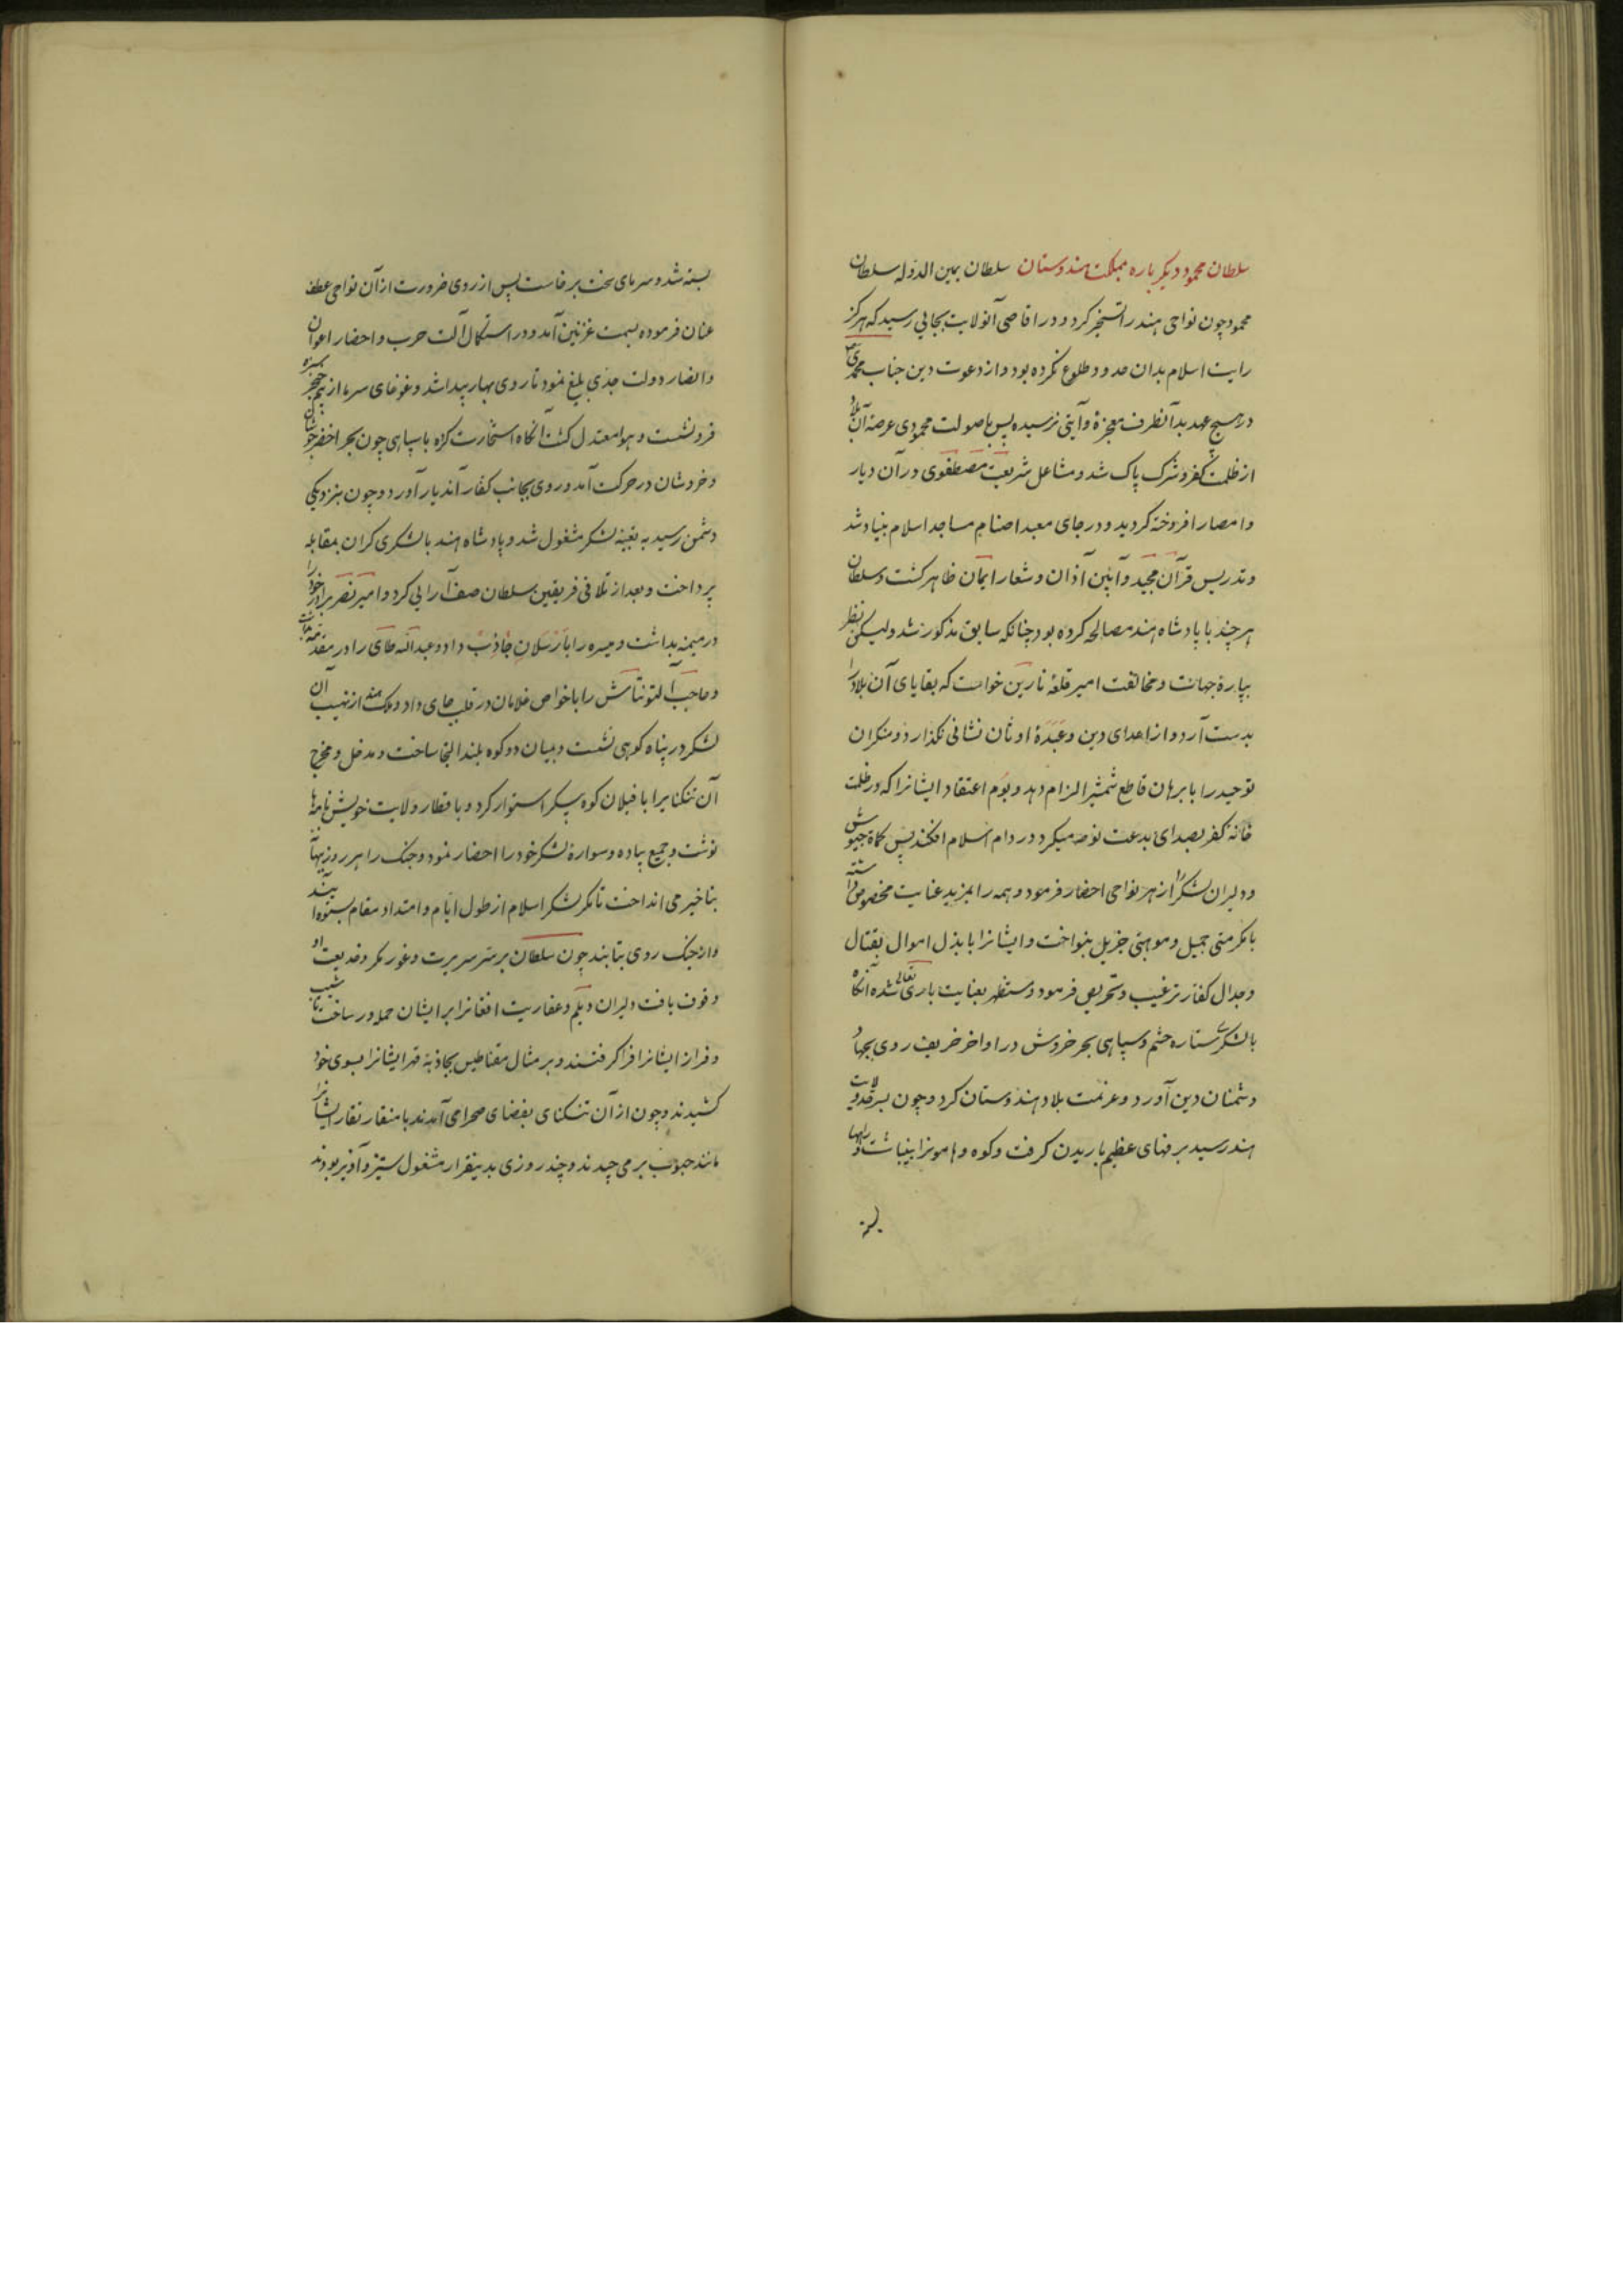 سلطان محمود دیگر باره بمملکت هندوستان سلطان یمین الدوله سلطان
محمود چون نواحی هند را تسخیر کرد و در اقاصی آنولایت بجایی رسید که هرگز
رایت اسلام بدان حدود طلوع نکرده بود و از دعوت دین جناب محمدی ص
در هیچ عهد بدآنطرف معجزهٔ وآیتی نرسیده پس با صولت محمودی عرصهٔ آن بلاد
از ظلمت کفر و شرک پاک شد و مشاعل شریعت مصطفوی در آن دیار
و امصار افروخته کردید و در جای معبد اصنام مساجد اسلام بنیاد شد
و تدریس قرآن مجید و آیین آذان و شعار ایمان ظاهر کشت و سلطان
هر چند با پادشاه هند مصالحه کرده بود چنانکه سابق مذکور شد ولیکن نظر
بپارهٔ جهات و مخالفت امیر قلعهٔ نارین خواست که بقایای آن بلاد را
بدست آرد و از اعدای دین و عَبَدَهٔ اوثان نشانی نکذارد و منکران
توحید را با برهان قاطع شمشیر الزام دهد و بوم اعتقاد ایشانرا که در ظلمت
خانهٔ کفر بصدای بدعت نوحه میکرد در دام اسلام افکند پس کماة جیوش
و دلیران لشکر را از هر نواحی احضار فرمود و همه را بمزید عنایت مخصوص داشته
با مکرمتی جمیل و موهبتی جزیل بنواخت و ایشانرا با بذل اموال بقتال
و جدال کفار ترغیب و تحریص فرمود و مستظهر بعنایت باری تعالی شده آنکاه
با لشکری ستاره حشم و سپاهی بحر خروش در اواخر خریف روی بجهاد
دشمنان دین آورد و عزیمت بلاد هندوستان کرد و چون بسرحد ولایت
هند رسید برفهای عظیم باریدن کرفت و کوه و هامونرا بینباشت و راهها
بسته
بسته شد و سرمای سخت برخاست پس از روی ضرورت از آن نواحی عطف
عنان فرموده بسمت غزنین آمد و در استکمال آلت حرب و احضار اعوان
و انصار دولت جدی بلیغ نمود تا روی بهار پیدا شد و غوغای سرما از
فرو نشست و هوا معتدل کشت آنکاه استخارت کرده با سپاهی چون بحر اخضر جوشان
و خروشان در حرکت آمد و روی بجانب کفار آندیار آورد و چون بنزدیکی
دشمن رسید به تعبیهٔ لشکر مشغول شد و پادشاه هند با لشکری کران بمقابله
پرداخت و بعد از تلاقی فریقین سلطان صف آرایی کرد و امیر نصر برادر خود را
در میمنه بداشت و میسره را با ارسلان جاذب داد و عبدالله طای را در مقدمه
و حاجب آلتونتاش را با خواص غلامان در قلب جای داد و ملک هند از نهیب آن
لشکر در پناه کوهی نشست و میان دو کوه بلند التجا ساخت و مدخل و مخرج
آن تنکنایرا با فیلان کوه پیکر استوار کرد و باقطار ولایت خویش نامها
نوشت و جمیع پیاده و سوارهٔ لشکر خود را احضار نمود و جنک را هر روز ببهانه
بتاخیر می انداخت تا مکر لشکر اسلام از طول ایام و امتداد مقام بستوه آیند
و از جنک روی بتابند چون سلطان بر سرّ سریرت و غور مکر و خدیعت او
وقوف یافت دلیران دیلم و عفاریت افغانرا بر ایشان حمله ور ساخت تا شیب
و فراز ایشانرا فرا کرفتند و بر مثال مقناطیس بجاذبهٔ قهر ایشانرا بسوی خود
کشیدند و چون از آن تنکنای بفضای صحرا می آمدند با منقار نقار ایشانرا
مانند حبوب بر می چیدند و چند روزی بدینقرار مشغول ستیز و آویز بودند